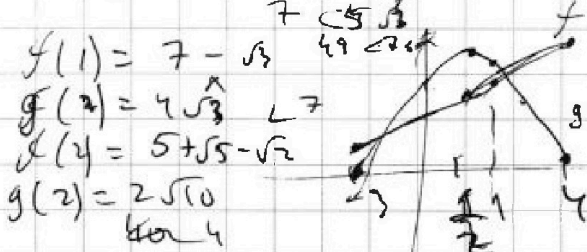 7 < 5√3
49 < 75
f(1) = 7 - √3
g(1) = 4√3 < 7
f(2) = 5+√5-√2
g(2) = 2√10
f
g
-3
1/2
1
4